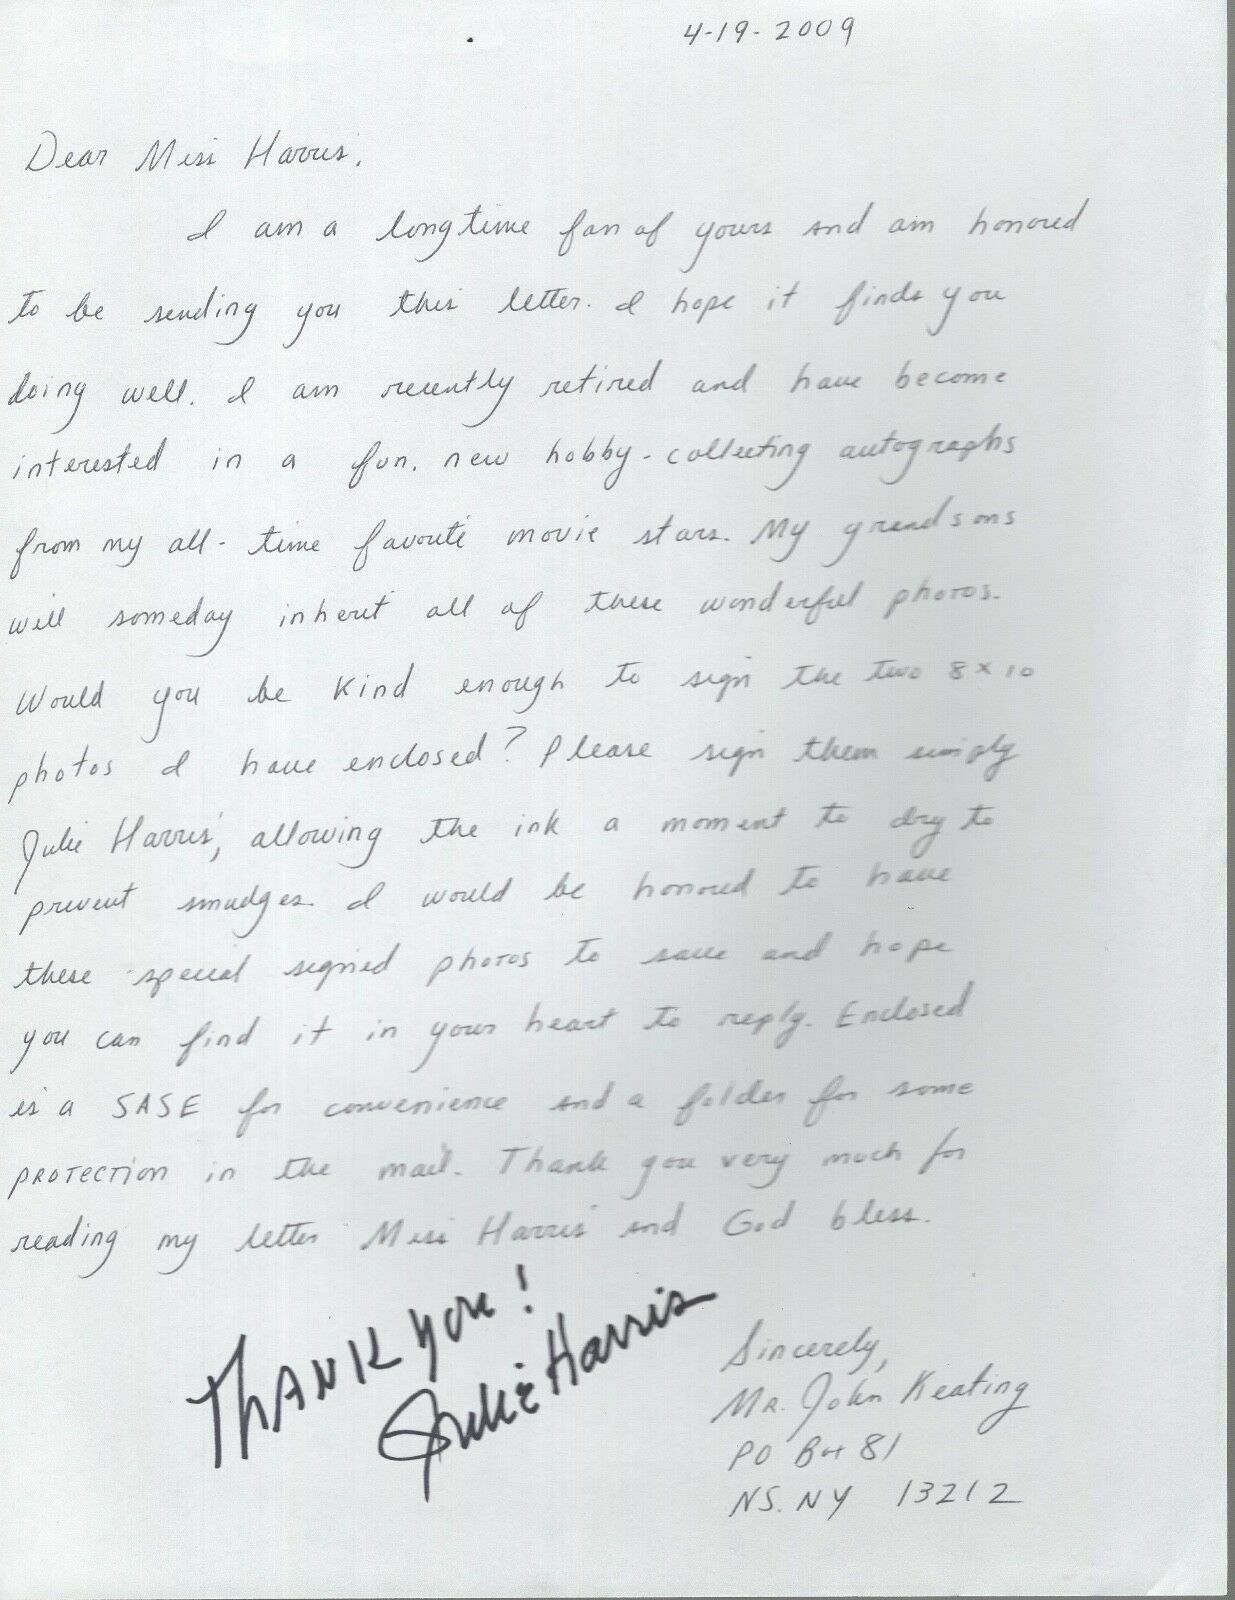 4-19-2009
Dear Miss Harris,
I am a longtime fan of yours and am honored
to be sending you this letter. I hope it finds you
doing well. I am recently retired and have become
interested in a fun, new hobby - collecting autographs
from my all-time favorite movie stars. My grandsons
will someday inherit all of these wonderful photos.
Would you be kind enough to sign the two 8x10
photos I have enclosed? Please sign them simply
Julie Harris, allowing the ink a moment to dry to
prevent smudges. I would be honored to have
these special signed photos to save and hope
you can find it in your heart to reply. Enclosed
is a SASE for convenience and a folder for some
PROTECTION in the mail. Thank you very much for
reading my letter Miss Harris and God bless.
THANK YOU!
Julie Harris
Sincerely,
MR. John Keating
PO Box 81
NS. NY 13212